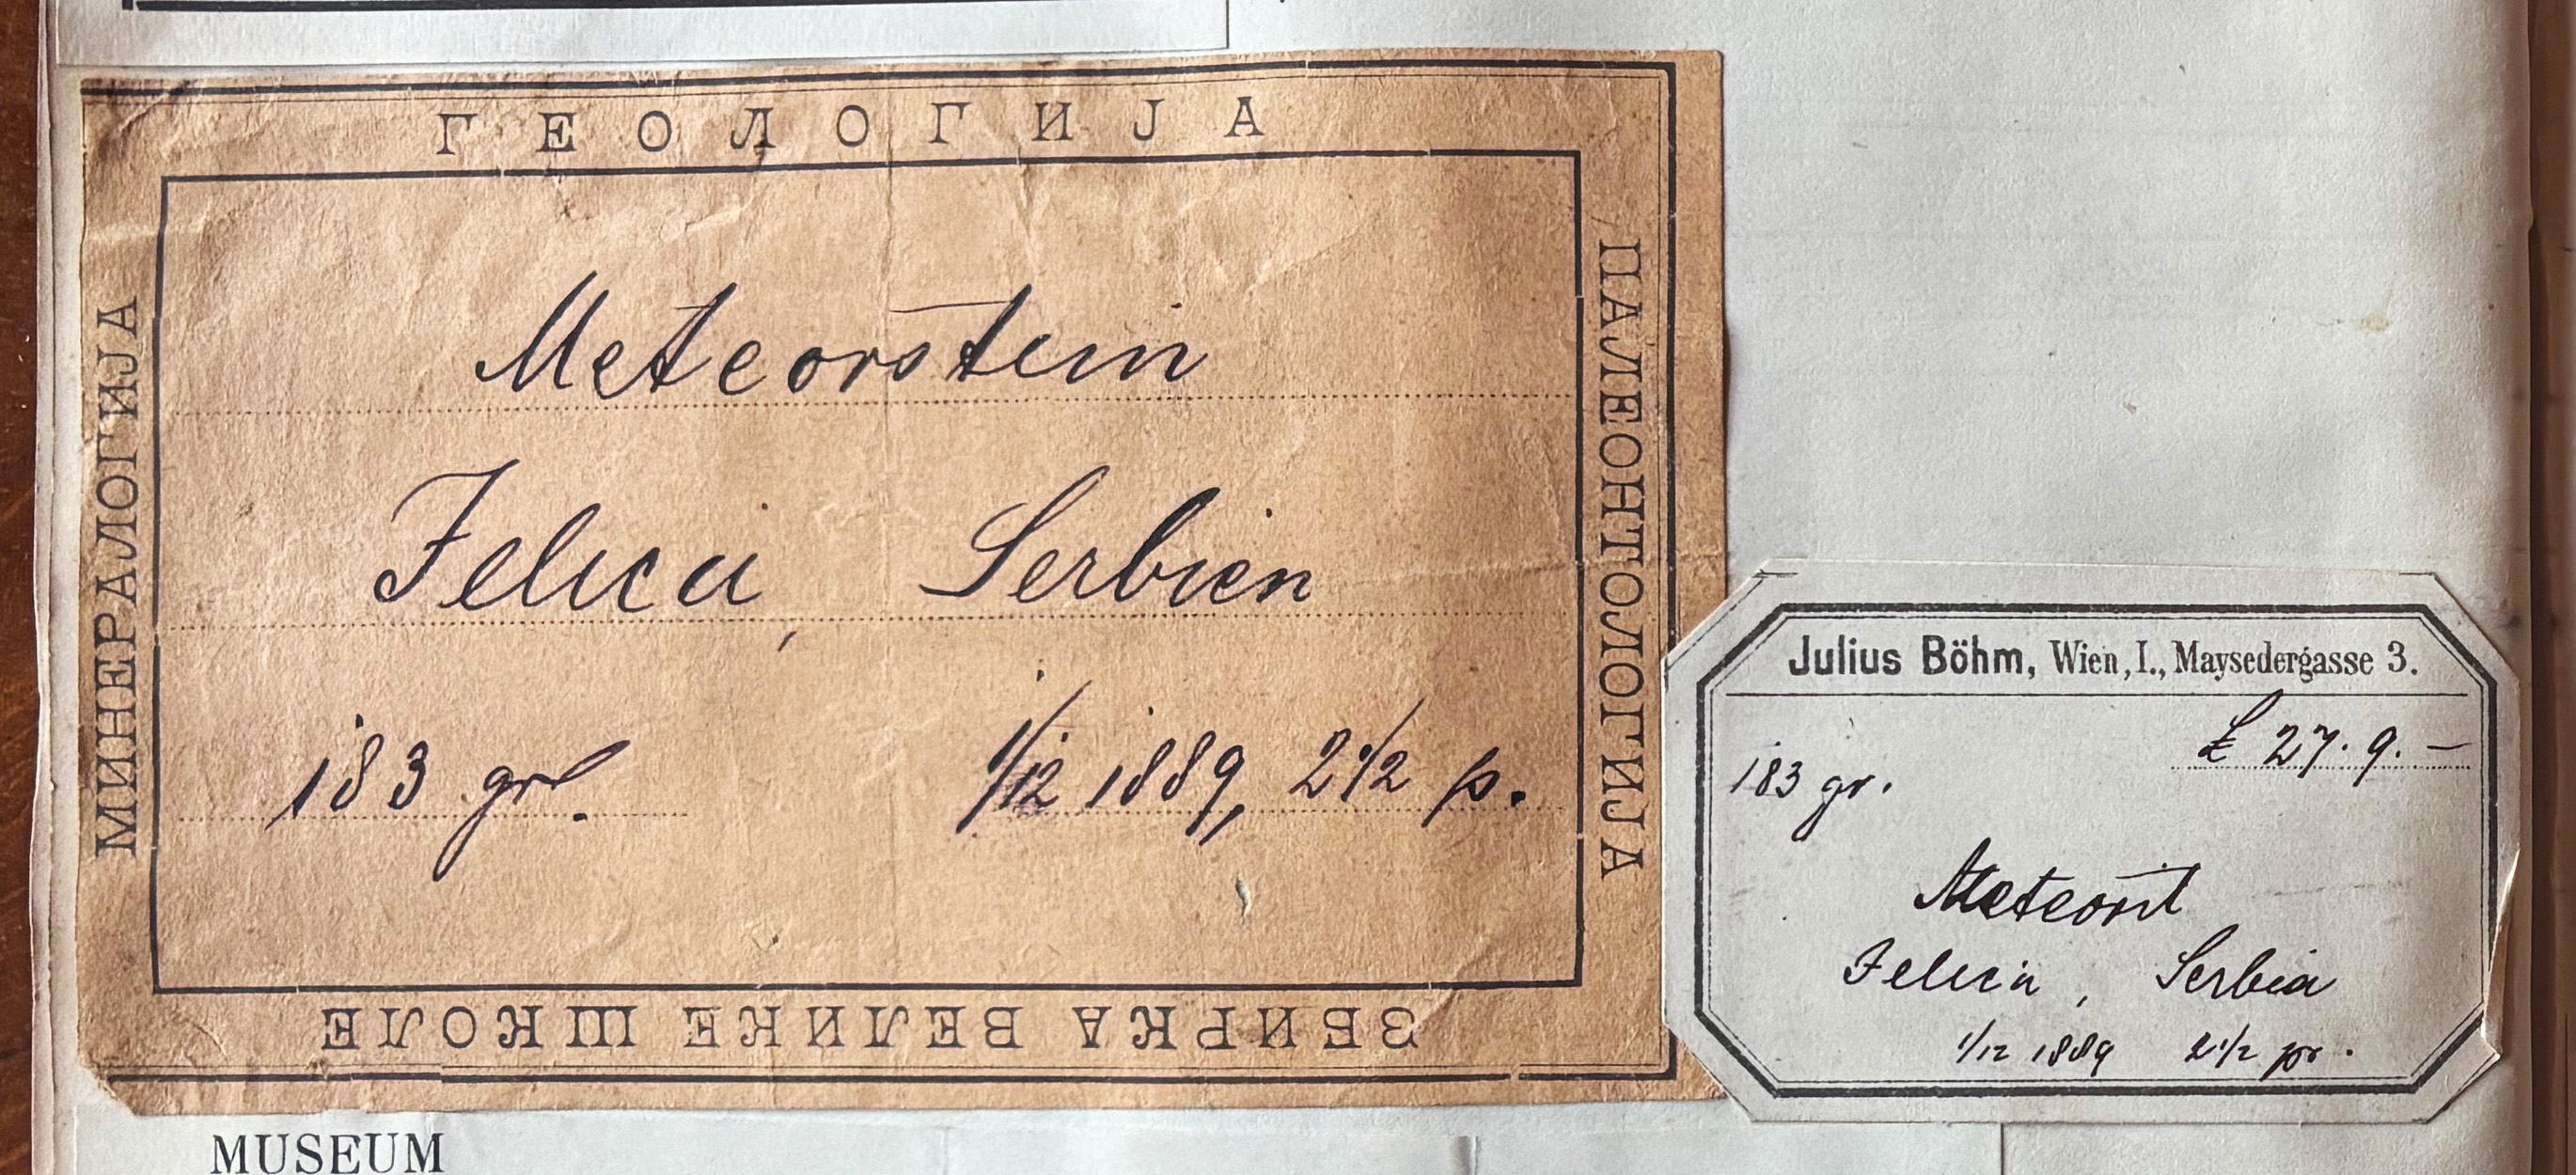 ГЕОЛОГИЈА
МИНЕРАЛОГИЈА
ПАЛЕОНТОЛОГИЈА
Meteorstein
Jelica, Serbien
183 gr. 1/12 1889, 2 1/2 p.
ЗБИРКА ВЕЛИКЕ ШКОЛЕ
Julius Böhm, Wien, I., Maysedergasse 3.
£ 27. 9. —
183 gr.
Meteorit
Jelica, Serbia
1/12 1889 2 1/2 pr.
MUSEUM